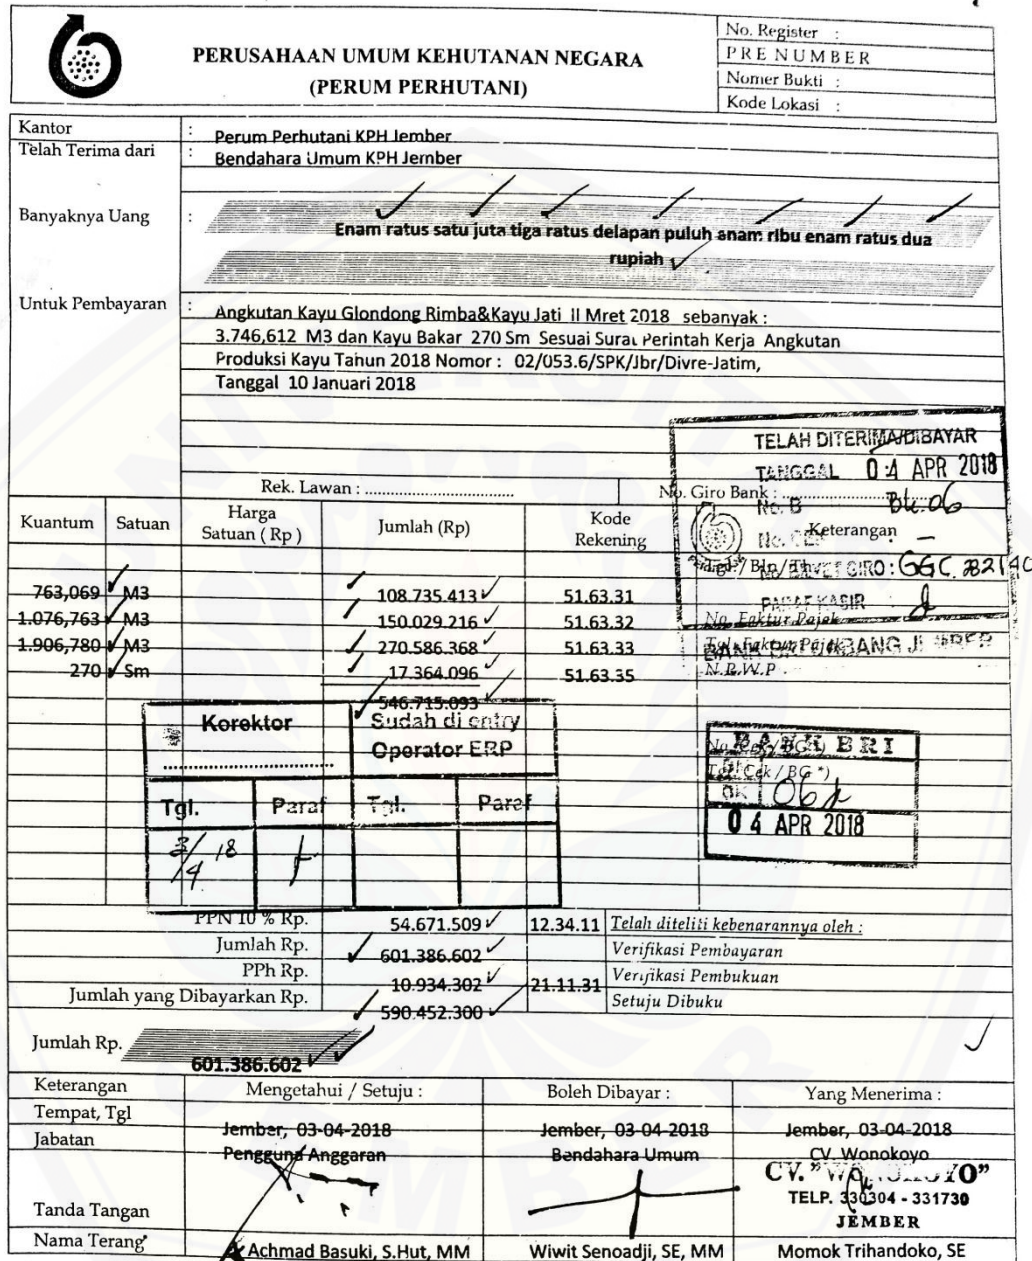 PERUSAHAAN UMUM KEHUTANAN NEGARA
(PERUM PERHUTANI)
No. Register :
PRENUMBER
Nomer Bukti :
Kode Lokasi :
Kantor : Perum Perhutani KPH Jember
Telah Terima dari : Bendahara Umum KPH Jember
Banyaknya Uang :
Enam ratus satu juta tiga ratus delapan puluh anam ribu enam ratus dua
rupiah
Untuk Pembayaran : Angkutan Kayu Glondong Rimba&Kayu Jati II Mret 2018 sebanyak :
3.746,612 M3 dan Kayu Bakar 270 Sm Sesuai Surat Perintah Kerja Angkutan
Produksi Kayu Tahun 2018 Nomor : 02/053.6/SPK/Jbr/Divre-Jatim,
Tanggal 10 Januari 2018
TELAH DITERIMA/DIBAYAR
TANGGAL 04 APR 2018
Rek. Lawan : ......................................
No. Giro Bank :
No. B Bk.06
Kuantum Satuan Harga Satuan ( Rp ) Jumlah (Rp) Kode Rekening Keterangan
Tgl / Bln / Th
GIRO : GGC.
PARAF KASIR
763,069 M3 108.735.413 51.63.31
1.076,763 M3 150.029.216 51.63.32 No. Faktur Pajak
1.906,780 M3 270.586.368 51.63.33 Tgl. Faktur Pajak
BANK
270 Sm 17.364.096 51.63.35 N.P.W.P
546.715.093
Korektor
Sudah di entry
Operator ERP
Tgl. Paraf Tgl. Paraf
3/4 18
No. Cek / BG *)
BANK BRI
Tgl. Cek / BG *)
OK 06
04 APR 2018
PPN 10 % Rp. 54.671.509 12.34.11 Telah diteliti kebenarannya oleh :
Jumlah Rp. 601.386.602 Verifikasi Pembayaran
PPh Rp. 10.934.302 21.11.31 Verifikasi Pembukuan
Jumlah yang Dibayarkan Rp. 590.452.300 Setuju Dibuku
Jumlah Rp. 601.386.602
Keterangan Mengetahui / Setuju : Boleh Dibayar : Yang Menerima :
Tempat, Tgl Jember, 03-04-2018 Jember, 03-04-2018 Jember, 03-04-2018
Jabatan Pengguna Anggaran Bendahara Umum CV. Wonokoyo
CV. "WONOKOYO"
TELP. 330304 - 331730
JEMBER
Tanda Tangan
Nama Terang Achmad Basuki, S.Hut, MM Wiwit Senoadji, SE, MM Momok Trihandoko, SE